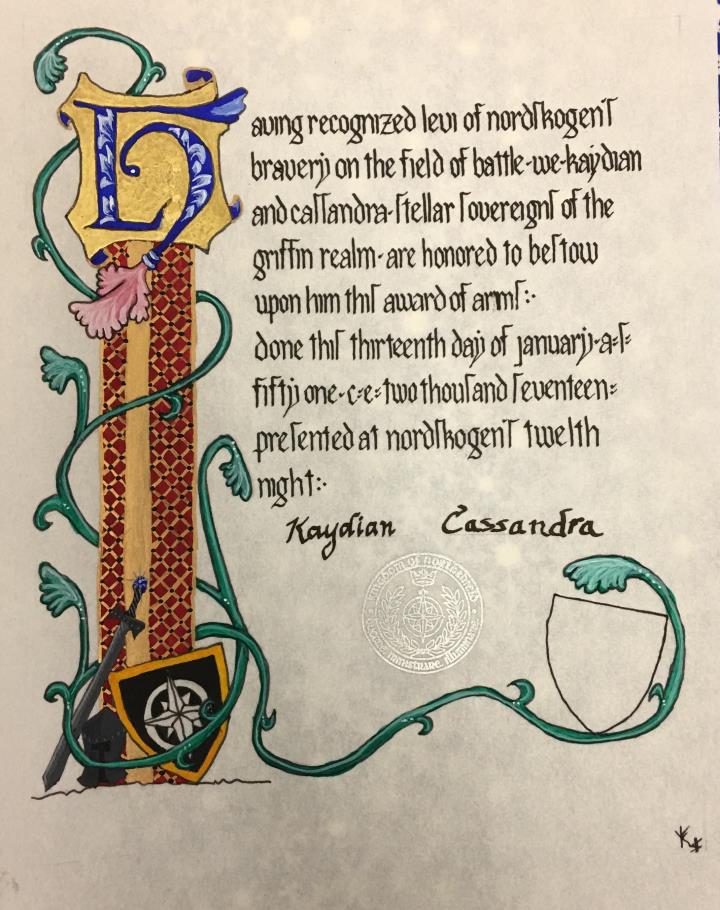 Having recognized levi of nordſkogen's
bravery on the field of battle-we-kaydian
and caſſandra-ſtellar ſovereignſ of the
griffin realm-are honored to beſtow
upon him thiſ award of armſ:·
done thiſ thirteenth day of january-a-ſ-
fifty one-c-e-two thouſand ſeventeen-
preſented at nordſkogen's twelth
night:·
Kaydian Cassandra
KINGDOM OF NORTHSHIELD